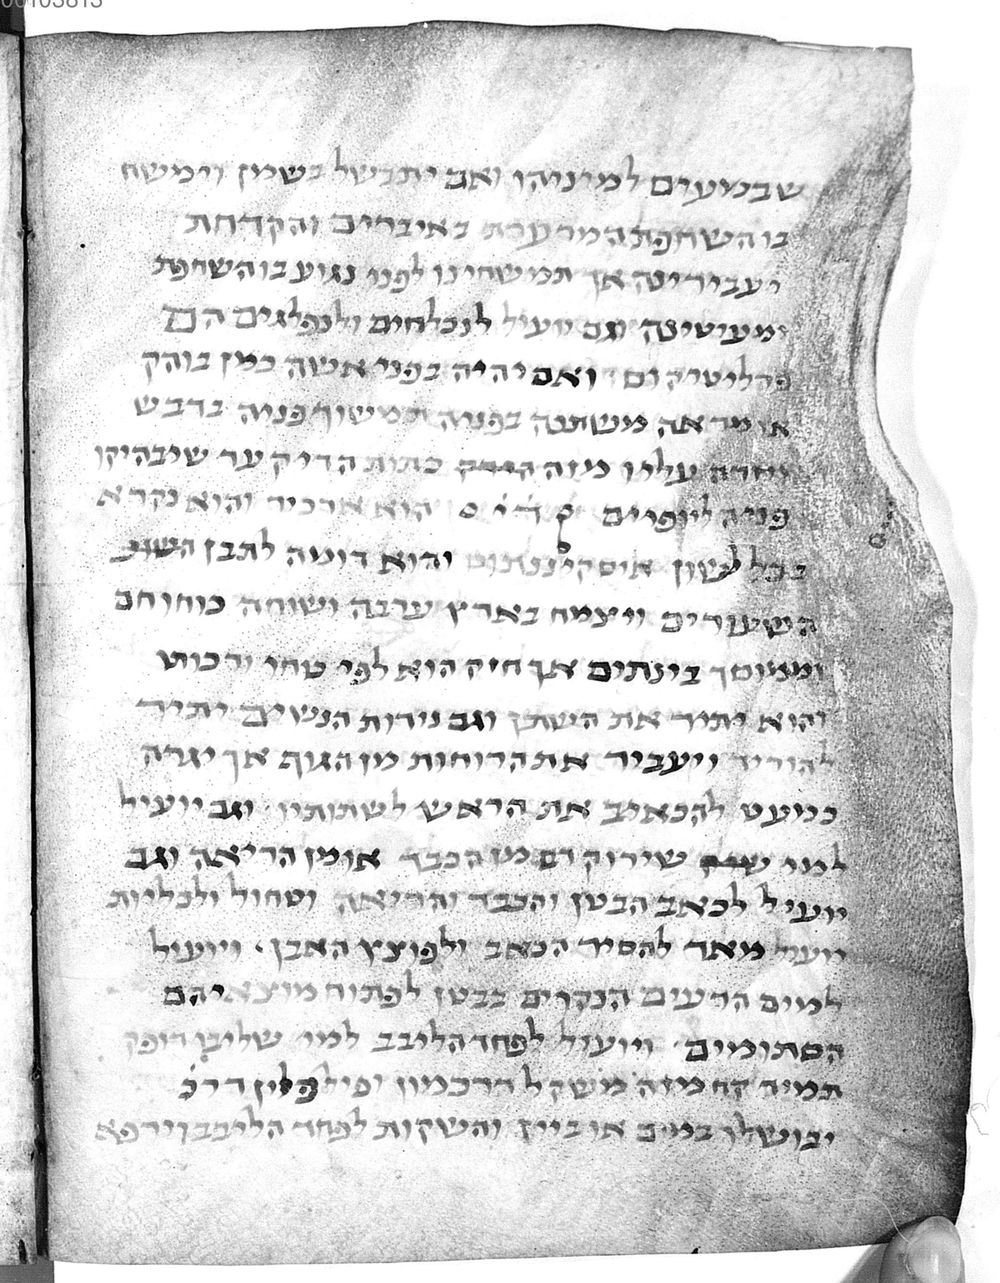 00103813
שבמעים למיניהן ואם יתבשל בשמן וימשח
בו השחפת המרערת באיברים והקדחת
יעבירינה אך תמשחינו לפני נגוע בו השחפת
ומעיטינה וגם יועיל לנכלחים ולנפלגים הם
פרליטיקום ואם יהיה בפני אשה כמן בוהק
או מראה משתנה בפניה תמשוך פניה בדבש
וזרה עליו מזה כתות הדיק עד שיבהיקו
פניה ליופיים הוא ארכיר והוא נקרא
בכל לשון והוא דומה לתבן
השעורים ויצמח בארץ ערבה ושוחה כוחו חם
וממוסך בינתים אך חזק הוא לפי טחו ורכותו
והוא יתיר את השתן וגם נידות הנשים יתיר
להוריד ויעביר את הרוחות מן הגוף אך יגרה
כמעט להכאיב את הראש לשתותיו וגם יועיל
למי שירוק דם מן הכבד או מן הריאה וגם
יועיל לכאב הבטן והכבד והריאה וטחול ולכליות
יועיל מאד להסיר הכאב ולפוצץ האבן ויועיל
למים הרעים הנקוים בבטן לפתוח מוצאיהם
הסתומים ויועיל לפחד הליבב למי שליבו דופק
תמיד קח מזה משקל דרכמון ופילפלין
יבושלו במים או ביין והשקות לפחד הליבב וירפא